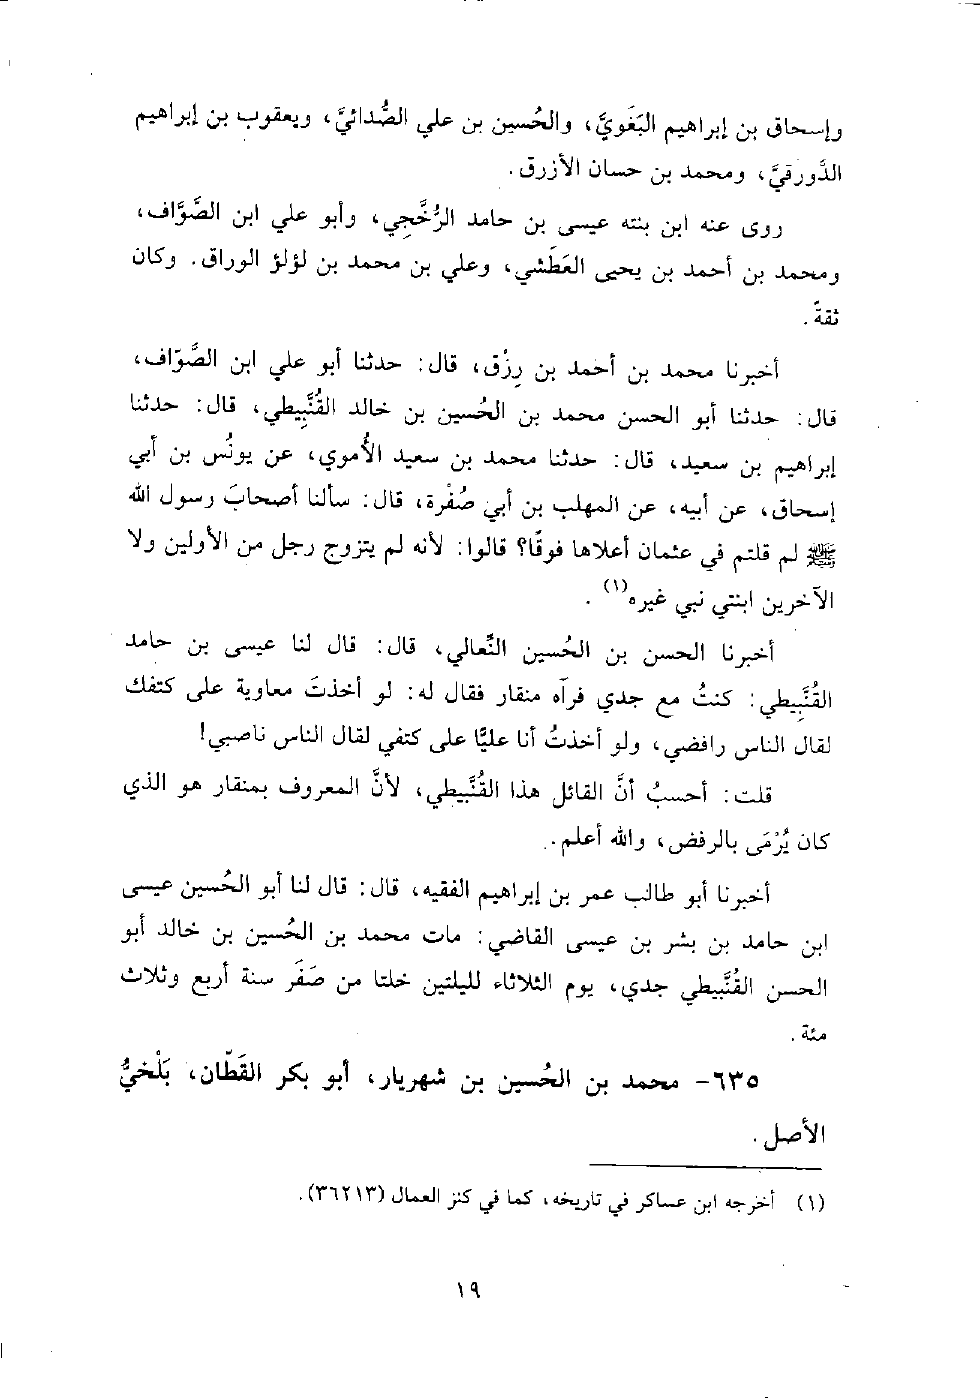 وإسحاق بن إبراهيم البَغَويَّ، والحُسين بن علي الصُّدائيَّ، ويعقوب بن إبراهيم
الدَّورقيَّ، ومحمد بن حسان الأزرق.
روى عنه ابن بنته عيسى بن حامد الرُّخَّجي، وأبو علي ابن الصَّوَّاف،
ومحمد بن أحمد بن يحيى العَطَشي، وعلي بن محمد بن لؤلؤ الوراق. وكان
ثقةً.
أخبرنا محمد بن أحمد بن رِزْق، قال: حدثنا أبو علي ابن الصَّوَّاف،
قال: حدثنا أبو الحسن محمد بن الحُسين بن خالد القُنَّبِيطي، قال: حدثنا
إبراهيم بن سعيد، قال: حدثنا محمد بن سعيد الأُموي، عن يونُس بن أبي
إسحاق، عن أبيه، عن المهلب بن أبي صُفْرة، قال: سألنا أصحابَ رسول الله
ﷺ لم قلتم في عثمان أعلاها فوقًا؟ قالوا: لأنه لم يتزوج رجل من الأولين ولا
الآخرين ابنتي نبي غيره(١).
أخبرنا الحسن بن الحُسين النِّعالي، قال: قال لنا عيسى بن حامد
القُنَّبِيطي: كنتُ مع جدي فرآه منقار فقال له: لو أخذتَ معاوية على كتفك
لقال الناس رافضي، ولو أخذتُ أنا عليًّا على كتفي لقال الناس ناصبي!
قلت: أحسبُ أنَّ القائل هذا القُنَّبيطي، لأنَّ المعروف بمنقار هو الذي
كان يُرْمَى بالرفض، والله أعلم.
أخبرنا أبو طالب عمر بن إبراهيم الفقيه، قال: قال لنا أبو الحُسين عيسى
ابن حامد بن بشر بن عيسى القاضي: مات محمد بن الحُسين بن خالد أبو
الحسن القُنَّبيطي جدي، يوم الثلاثاء لليلتين خلتا من صَفَر سنة أربع وثلاث
مئة.
٦٣٥- محمد بن الحُسين بن شهريار، أبو بكر القَطّان، بَلْخيُّ
الأصل.
(١) أخرجه ابن عساكر في تاريخه، كما في كنز العمال (٣٦٢١٣).
١٩